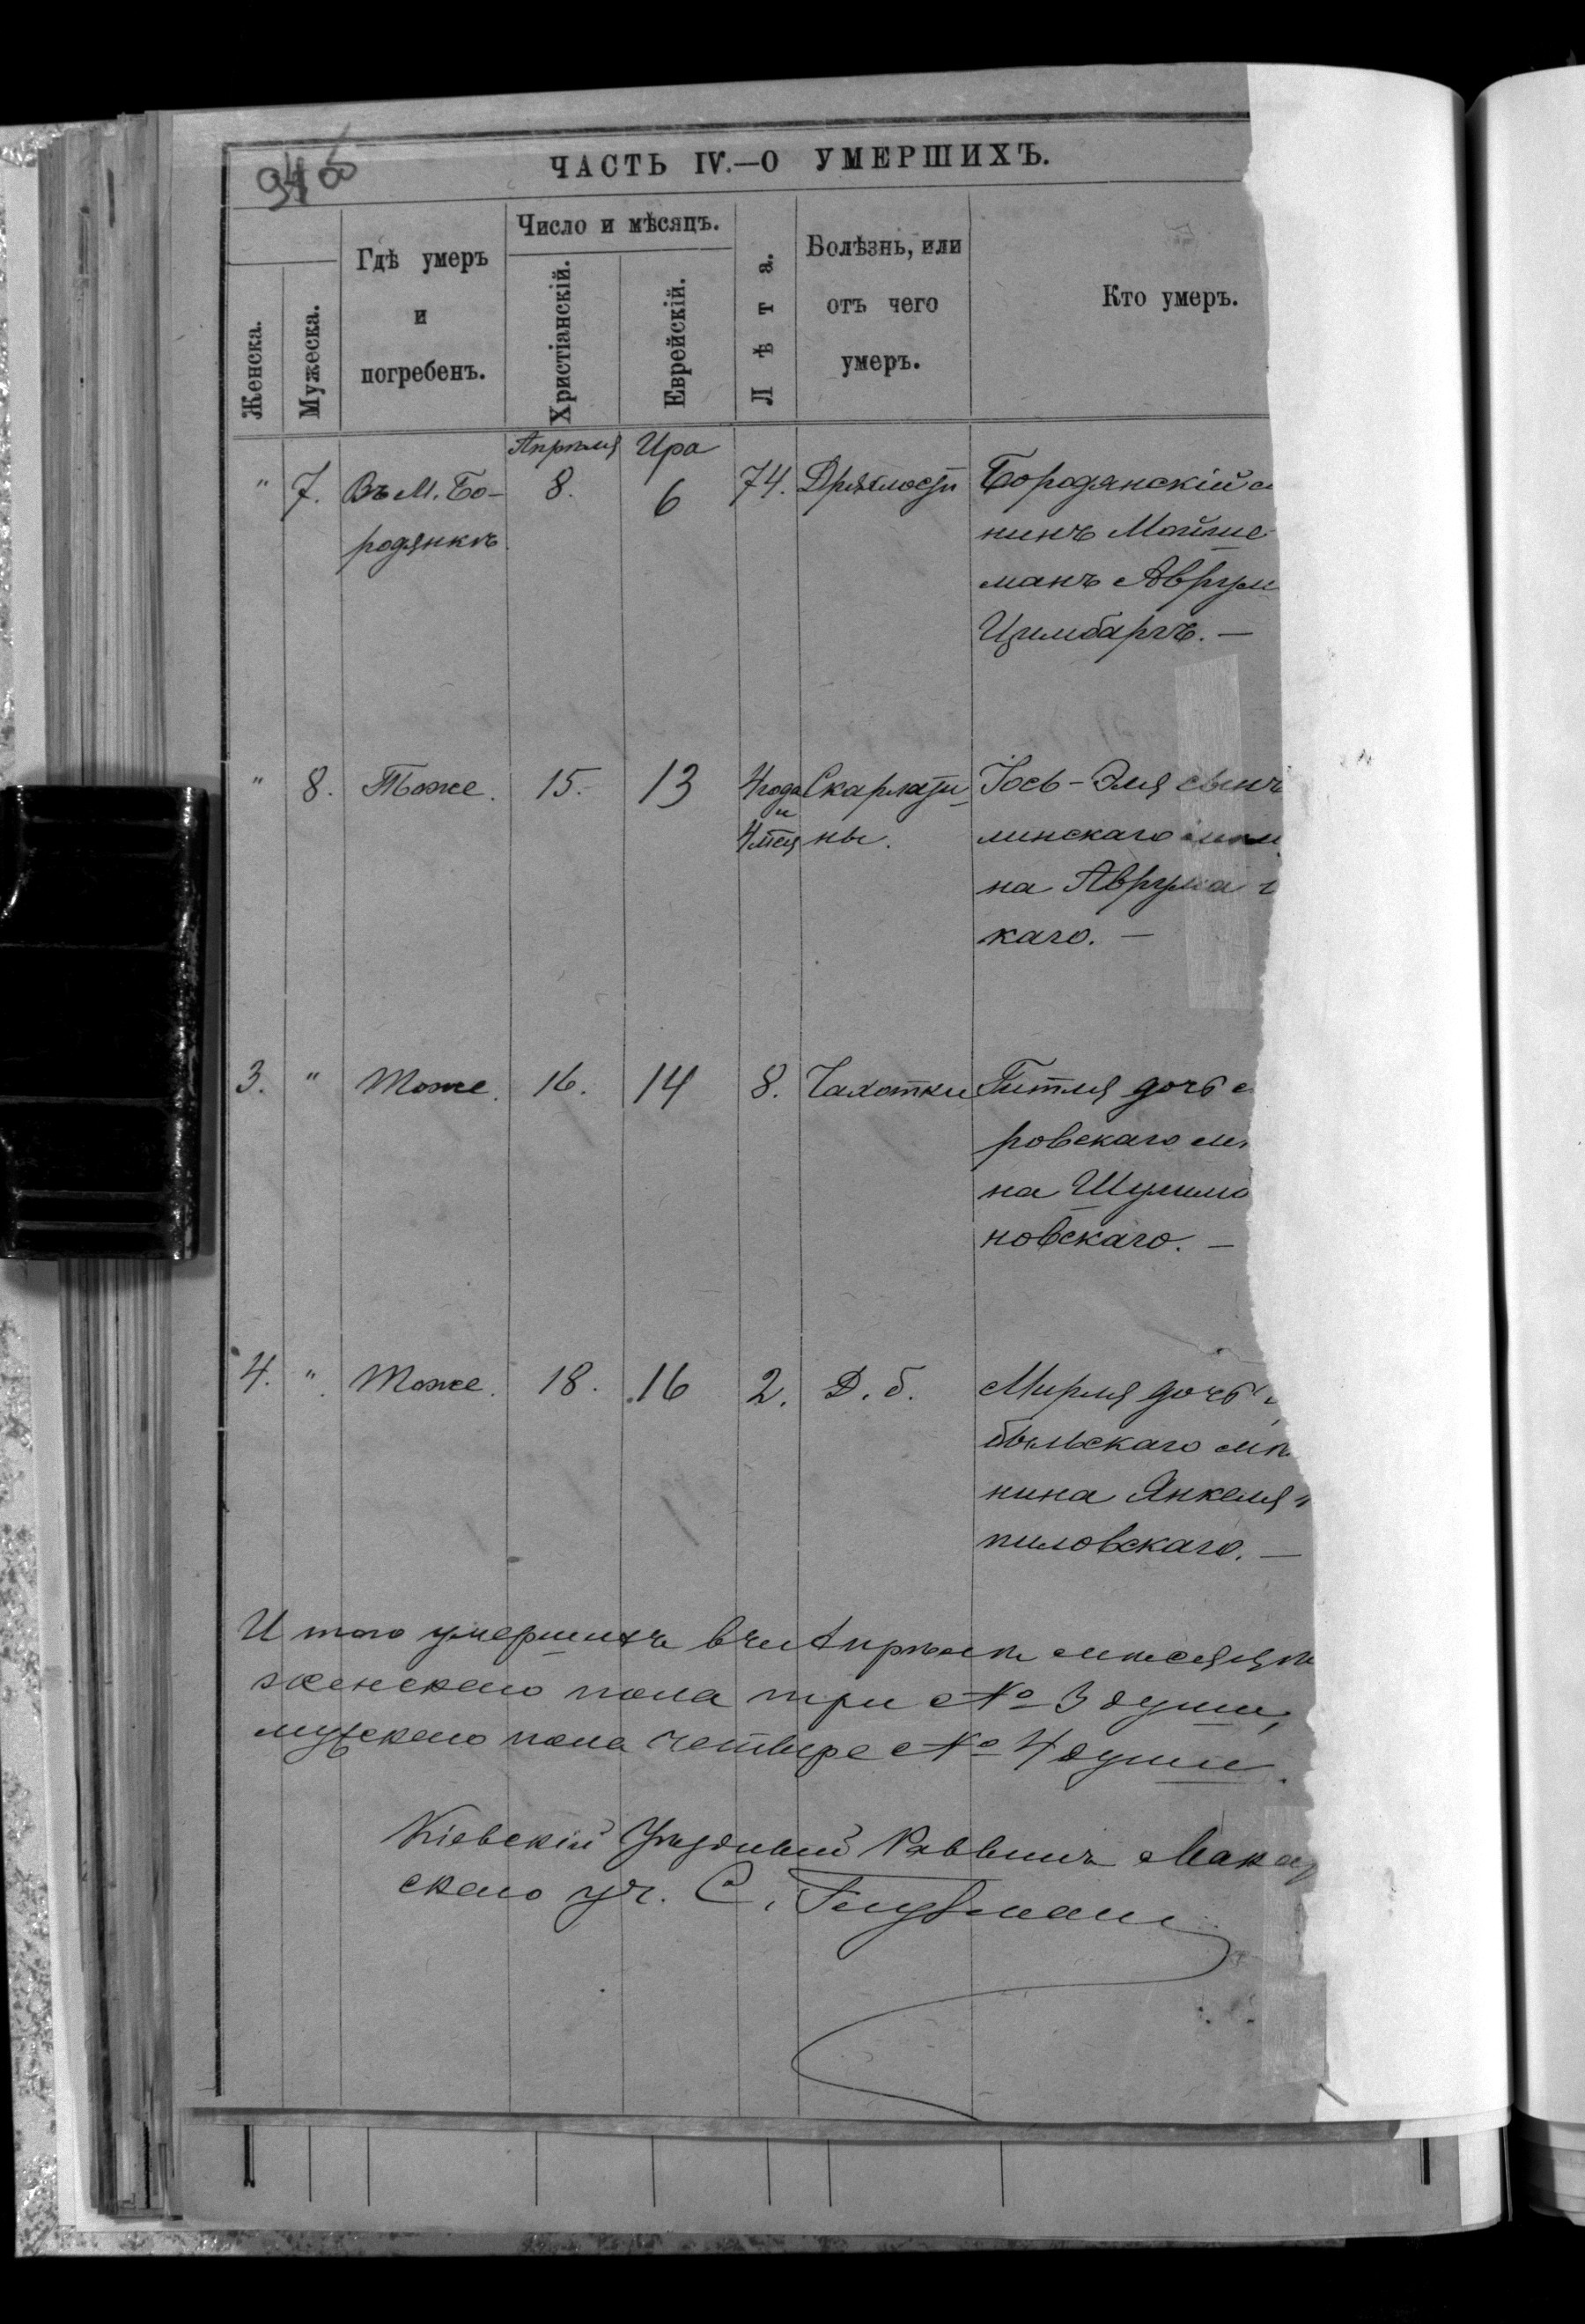 ЧАСТЬ IV.—О УМЕРШИХЪ.
Женска.
Мужеска.
Гдѣ умеръ
и
погребенъ.
Число и мѣсяцъ.
Христіанскій.
Еврейскій.
Лѣта.
Болѣзнь, или
отъ чего
умеръ.
Кто умеръ.
Апрѣля Ира
" 7. Въ М. Бо- 8. 6 74. Дряхлости Бородянскій
родянкѣ. нинъ Мойше
манъ Аврум
Цимбаргъ. —
" 8. Тоже. 15. 13 4 года Скарлати- Іось-Эля сынъ
и
4 мѣся ны. линскаго мѣщ
на Аврума
каго. —
3. " Тоже. 16. 14 8. Чахотки Гитля дочь
ровскаго мѣ
на Шулимо
новскаго. —
4. " Тоже. 18. 16 2. Д. б. Мирля дочь
быльскаго мѣ
нина Янкеля
пиловскаго. —
Итого умершихъ въ Апрѣлѣ мѣсяцѣ
женскаго пола три № 3 души,
мужскаго пола четыре № 4 души.
Кіевскій Уѣздный Раввинъ Макар
скаго уч. С.